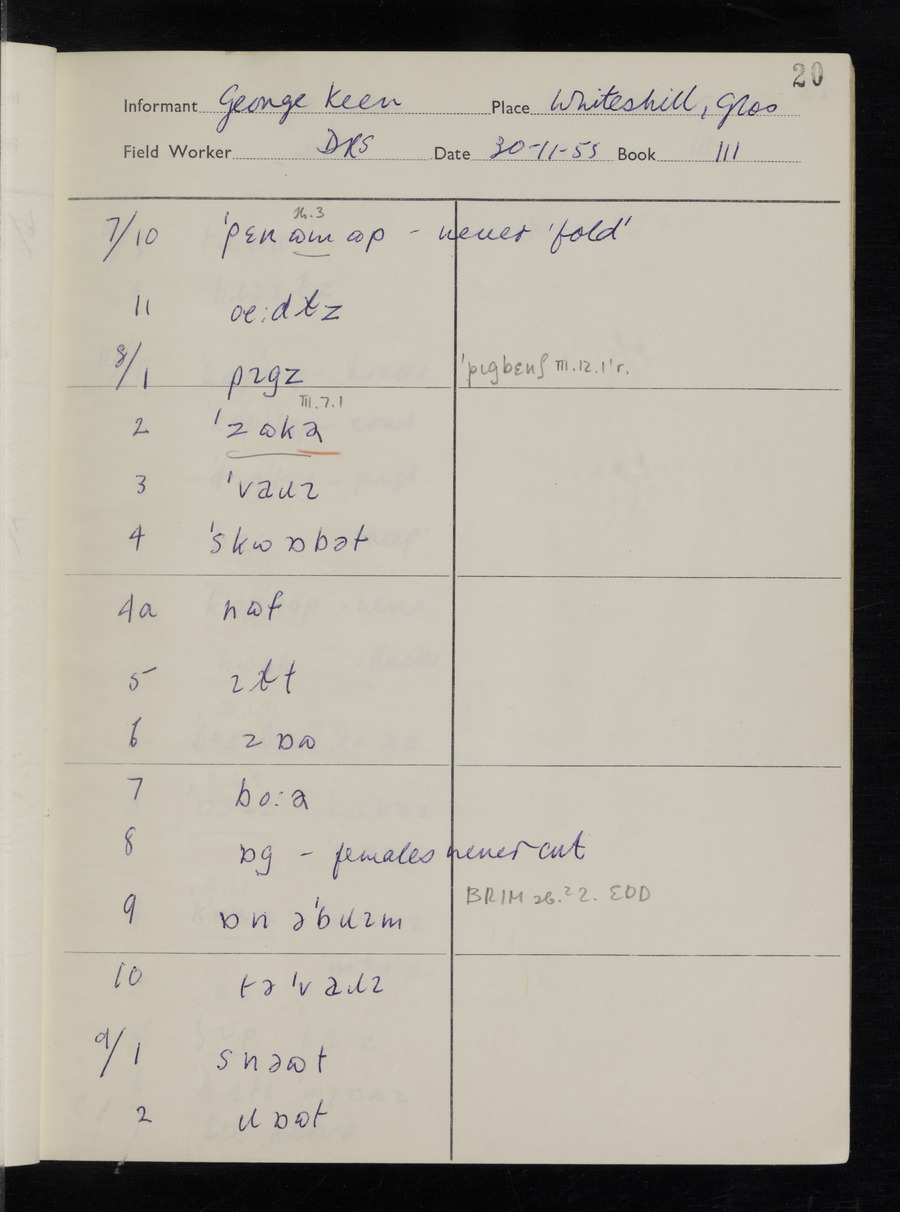 20
Informant George Keen Place Whiteshill, Glos
Field Worker DRS Date 30-11-55 Book III
7/10 ˈpɛn ɷm ɷp - never 'fold'
11 œːdɫz
8/1 pɪgz ˈpɪgbɛnʃ III.12.1 'r.
III.7.1
2 ˈzɷkə
3 ˈvaɹɪ
4 ˈskɷɒbət
4a nɷt
5 tɪt
6 zɒɷ
7 boːə
8 ɒg - females never cut
9 ɒn əˈbɹɪm BRIM sb.² 2. EDD
10 tə ˈvaɹɪ
9/1 snəɷt
2 ɹɒɷt